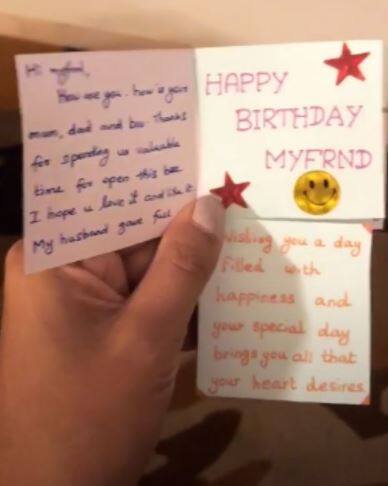 Hi myfrnd,
How are you. how is your
mom, dad and bro. Thanks
for spending us valuable
time for open this box
I hope u love it and like it.
My husband gave full
HAPPY
BIRTHDAY
MYFRND
Wishing you a day
filled with
happiness and
your special day
brings you all that
your heart desires